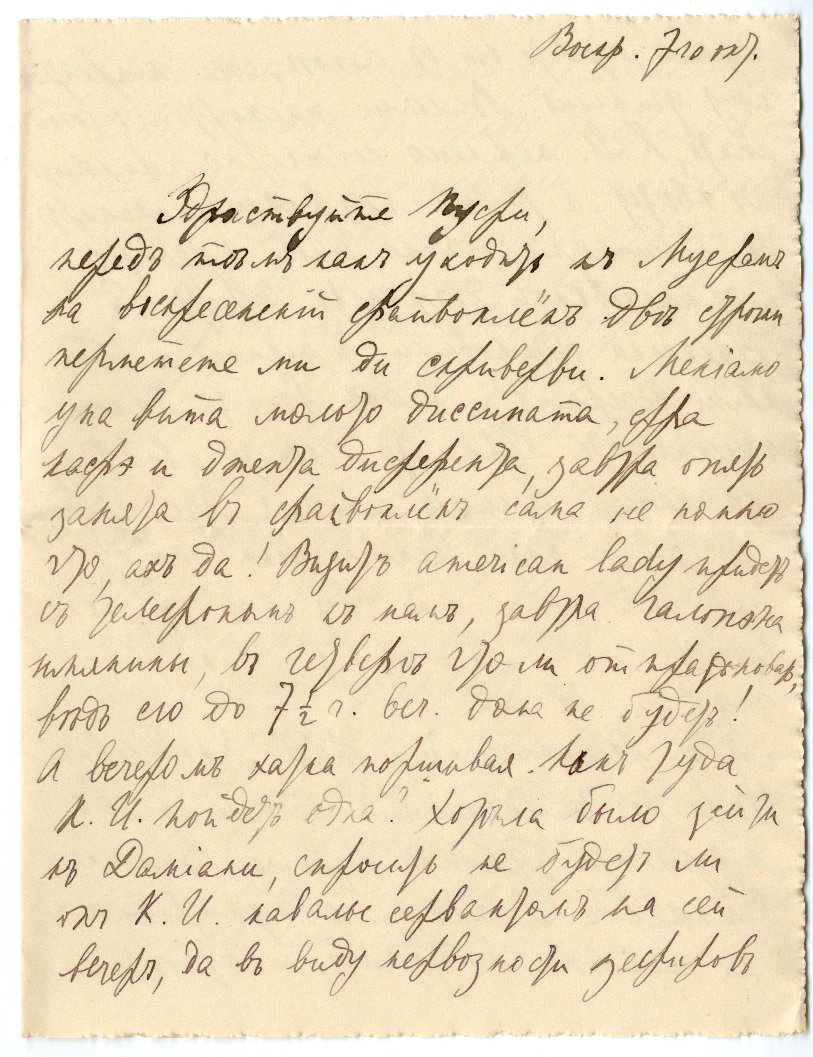 Воскр. 7го окт.
Здраствуйте Пусси,
передъ тѣмъ какъ уходить къ Муерамъ
на воскресенскій файвоклёкъ двѣ строки
перметете ми ди скриверви. Мекіамо
уна вита мольто диссипата, фра
касэ и джента диферента, завтра опять
занята въ файвоклёкъ сама не помню
что, ахъ да! Визитъ american lady придетъ
съ телефонымъ къ намъ, завтра
шпилкины, въ четвергъ что ли отпразновар,
вѣдь его до 7½ г. веч. дома не будетъ!
А вечеромъ хатка поршивая. Какъ туда
К. И. пойдетъ одна? Хотѣла было зайти
къ Даміани, спросить не будетъ ли
онъ К. И. кавалье сервантомъ на сей
вечеръ, да въ виду нервозности зефировъ